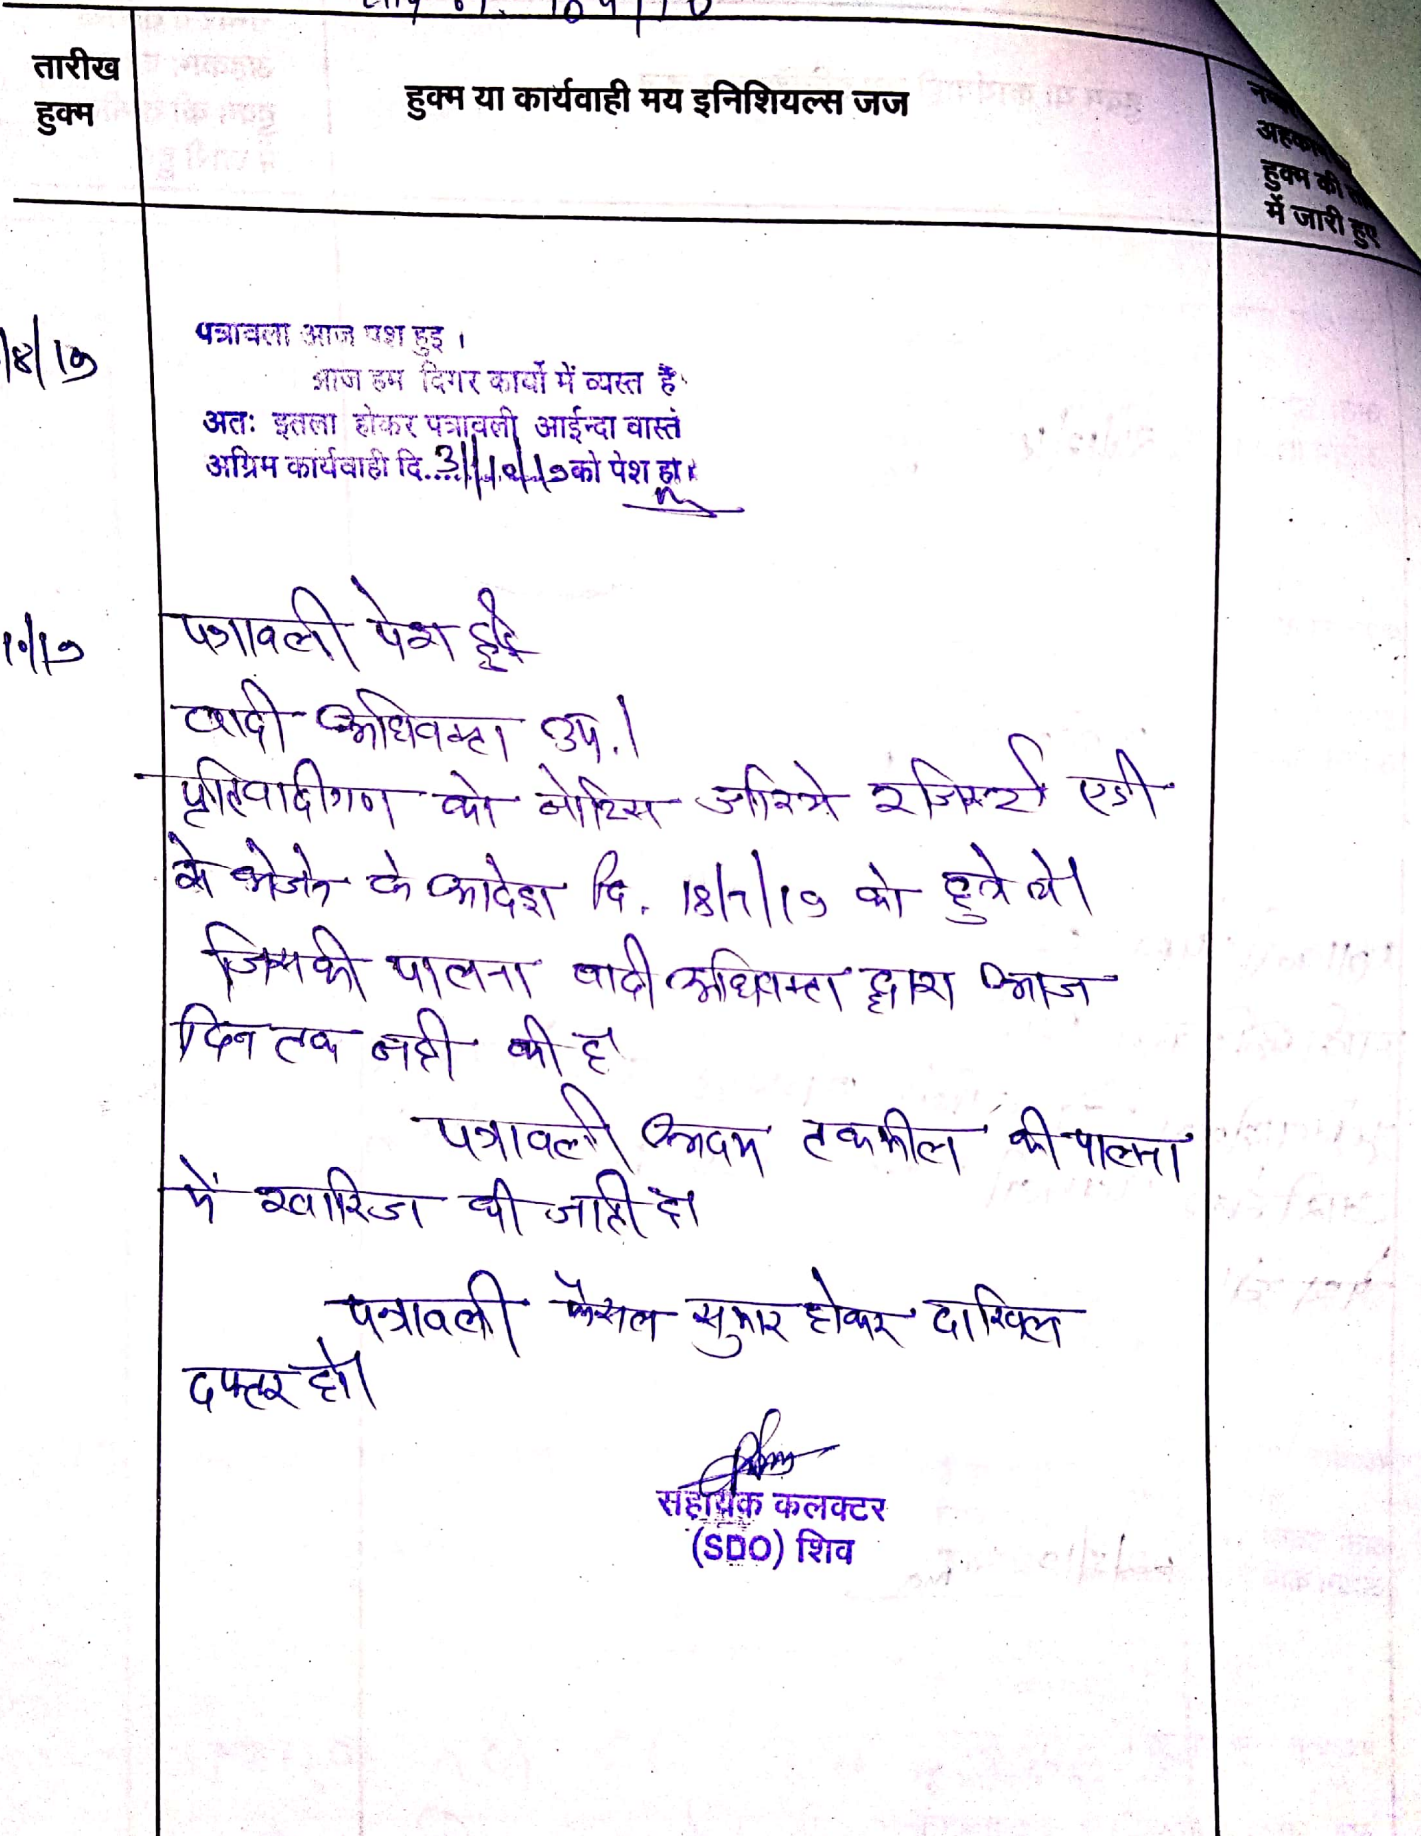 तारीख
हुक्म
हुक्म या कार्यवाही मय इनिशियल्स जज
अहकाम
हुक्म की
में जारी हुए
18/19
पत्रावली आज पेश हुई ।
आज हम दिगर कार्यो में व्यस्त है
अतः इतला होकर पत्रावली आईन्दा वास्ते
अग्रिम कार्यवाही दि. 31/10/19 को पेश हो ।
10/19
पत्रावली पेश हुई
वादी अधिवक्ता उप.।
प्रतिवादीगण को नोटिस जरिये रजिस्टर्ड एडी
से भेजने के आदेश दि. 18/7/19 को हुये थे।
जिसकी पालना वादी अधिवक्ता द्वारा आज
दिन तक नही की है
पत्रावली अदम तकमील की पालना
में खारिज की जाती है।
पत्रावली फैसल सुमार होकर दाखिल
दफ्तर हो।
सहायक कलक्टर
(SDO) शिव